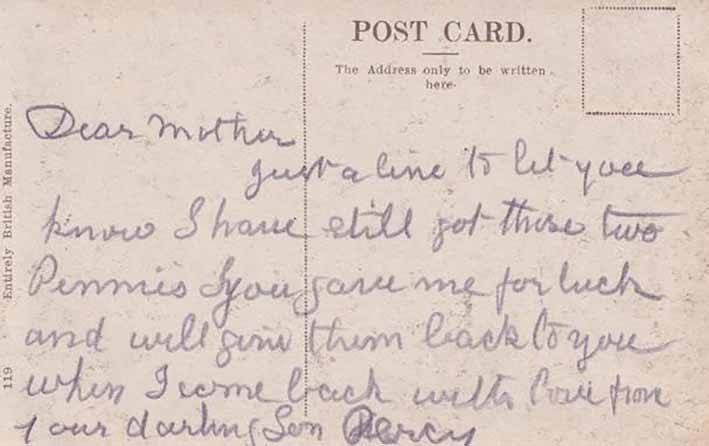 POST CARD.
The Address only to be written
here.
Dear Mother
just a line to let you
know I have still got those two
Pennies you gave me for luck
and will give them back to you
when I come back with love from
your darling Son Percy
119 Entirely British Manufacture.